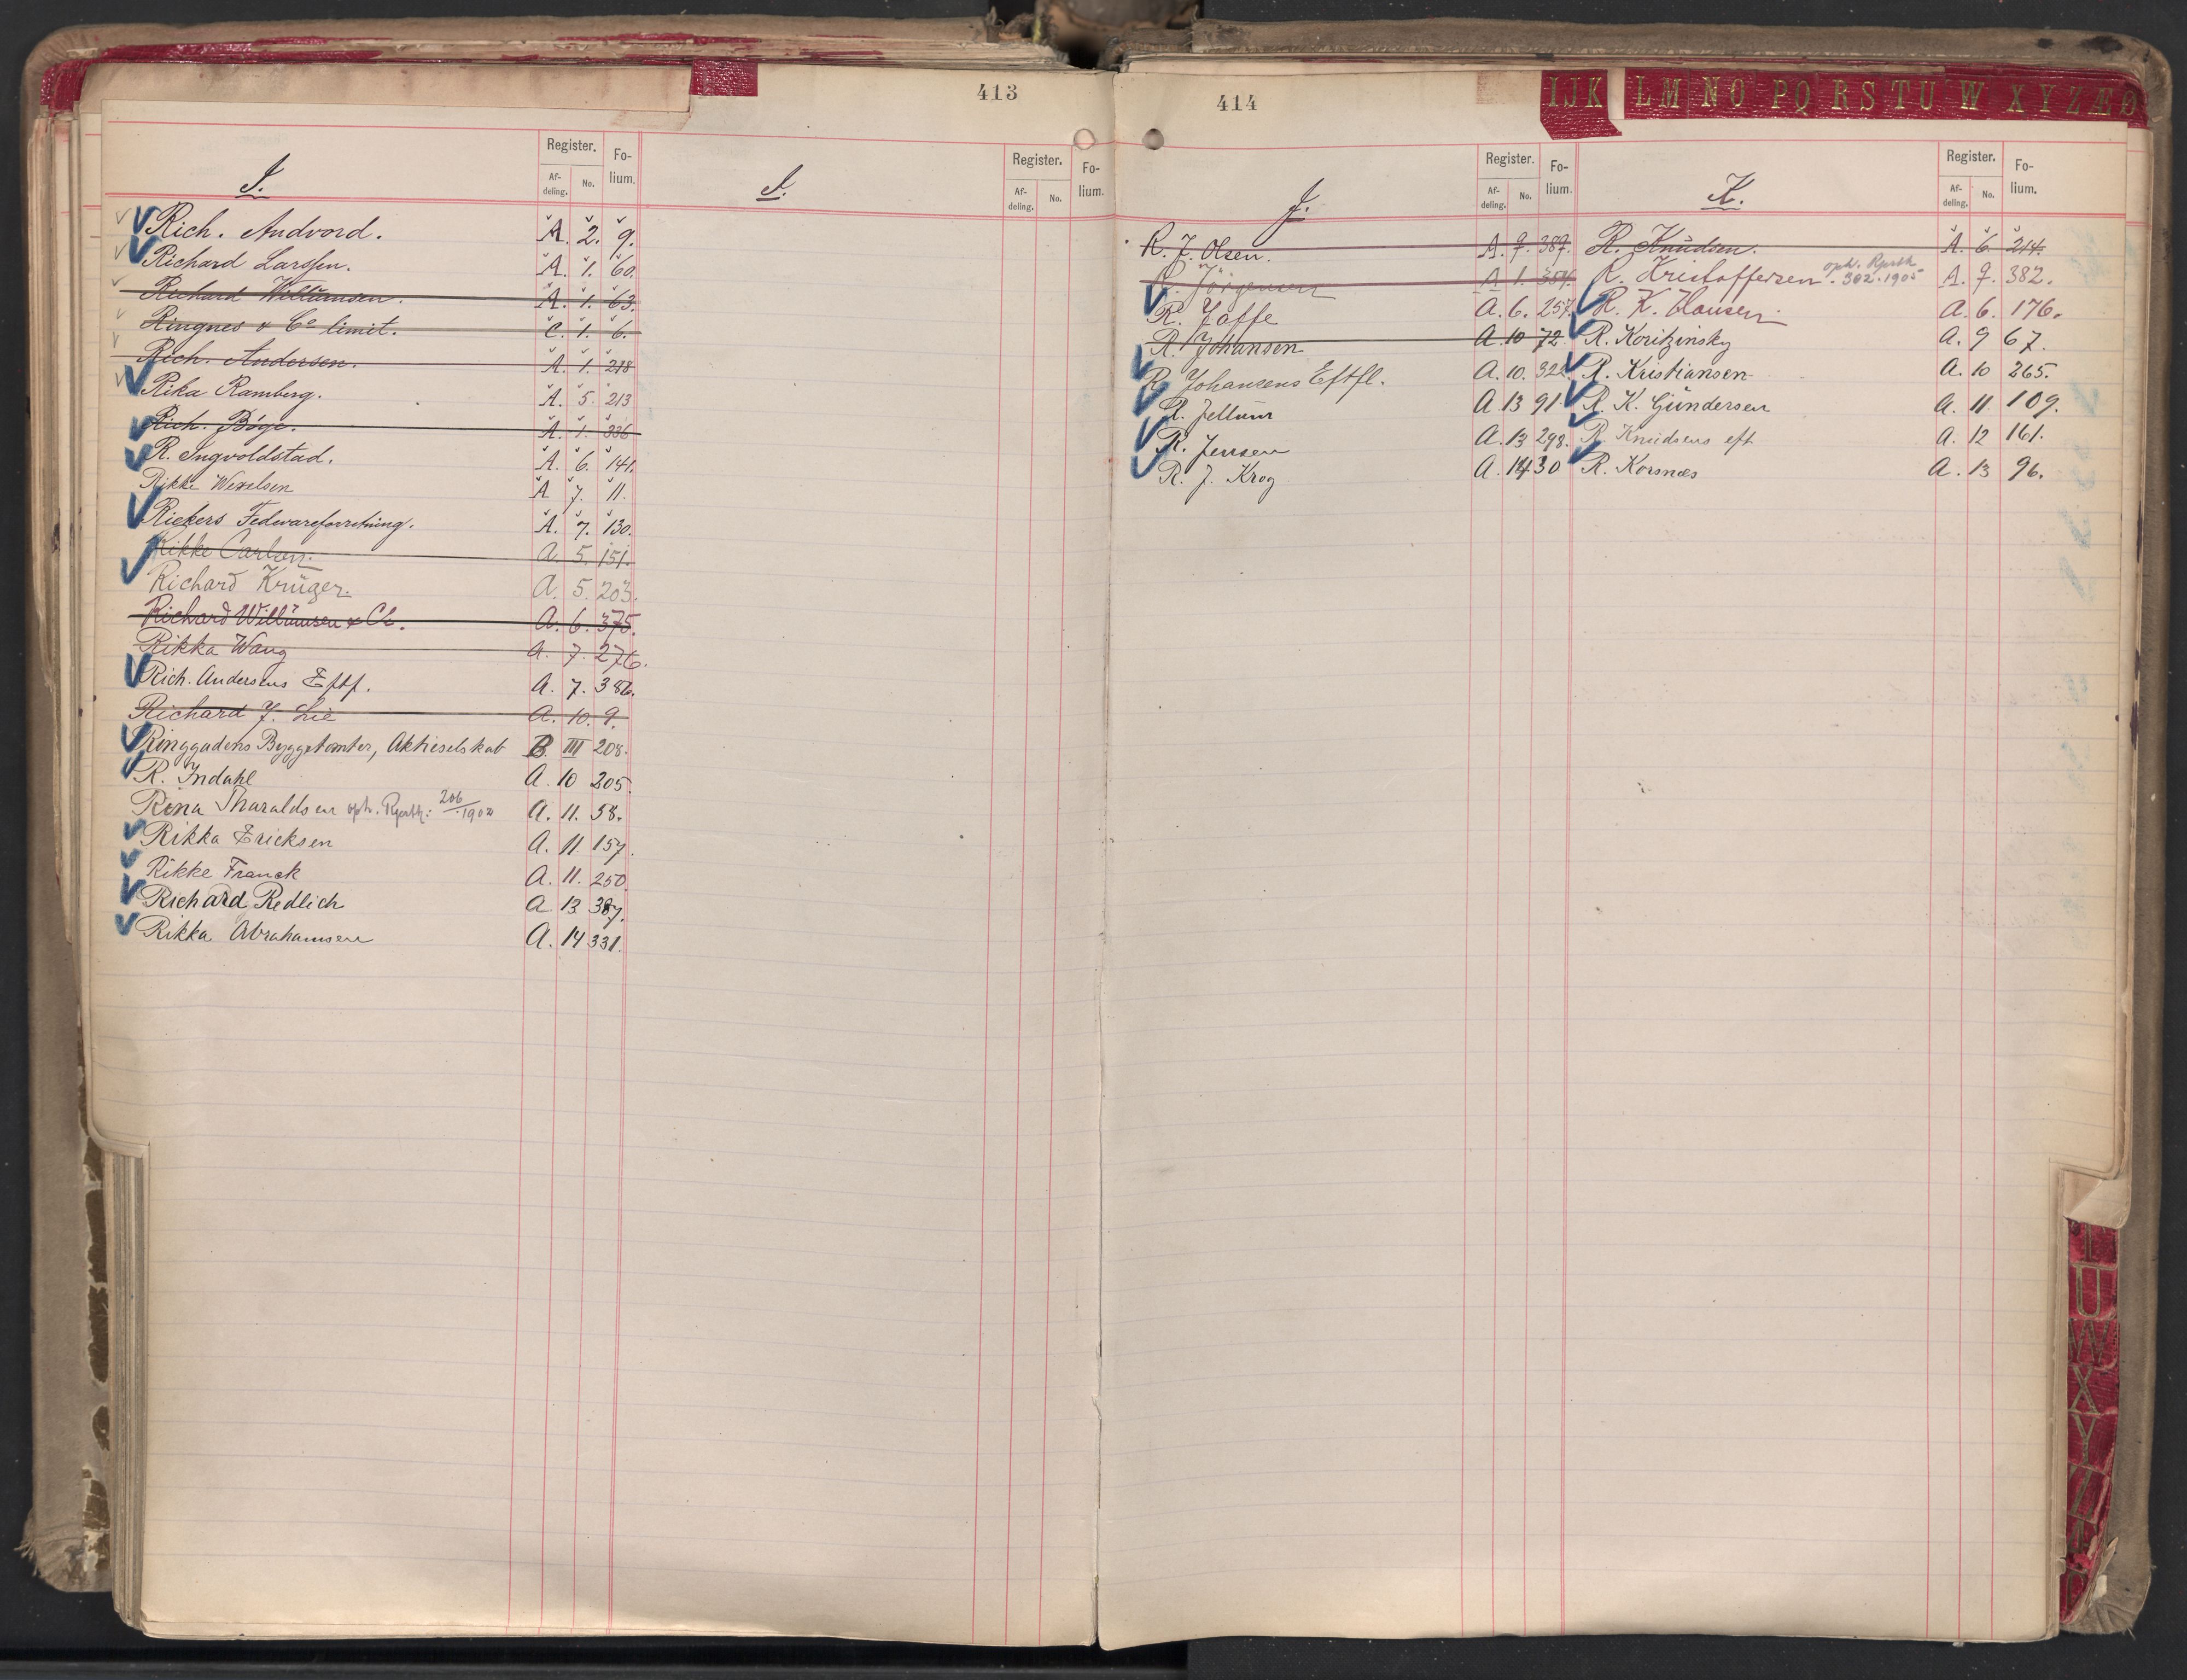 413
I.
Register. Fo-lium.
Af-deling. No.
I.
Register. Fo-lium.
Af-deling. No.
Rich. Andvord. A. 2. 9.
Richard Larssen. A. 1. 60.
Richard Williamsen. A. 1. 63.
Ringnes & Co limit. C. 1. 6.
Rich. Andersen. A. 1. 218
Rika Ramberg. A. 5. 213
Rich. Bøge. A. 1. 336
R. Ingvoldstad. A. 6. 141.
Rikke Wexelsen A 7. 11.
Riekers Fedevareforretning. A. 7. 130.
Rikke Carlsen. A. 5. 151.
Richard Krüger. A. 5. 203.
Richard Williamsen & Co. A. 6. 375.
Rikka Wang A. 7. 276.
Rich. Andersens Eftf. A. 7. 386.
Richard J. Lie A. 10. 9.
Ringgadens Byggetomter, Aktieselskab B III 208.
R. Indahl A. 10 205.
Rina Tharaldsen oph. 206/1902 A. 11. 58.
Rikka Ericksen A. 11. 157.
Rikke Franck A. 11. 250
Richard Redlich A 13 387.
Rikka Abrahamsen A. 14 331.
414
IJK LM NO PQ RS TU W XYZÆØ
J.
Register. Fo-lium.
Af-deling. No.
R. J. Olsen. A. 7. 387.
R. Jörgensen A 1. 354.
R. Jaffe A. 6. 257.
R. Johansen A 10 72
R. Johansens Eftfl. A. 10. 322
R. Jellum A 13 91
R. Jensen A. 13 298.
R. J. Krog A. 14 30
K.
Register. Fo-lium.
Af-deling. No.
R. Knudsen. A. 6. 214.
R. Kristoffersen. oph. 302.1905 A. 7. 382.
R. K. Clausen A. 6. 176.
R. Koritzinsky A. 9 67.
R. Kristiansen A. 10 265.
R. K. Gundersen A. 11. 109.
R. Knudsens eft. A. 12 161.
R. Korsnæs A. 13 96.
T
U
W
X
Y
Z